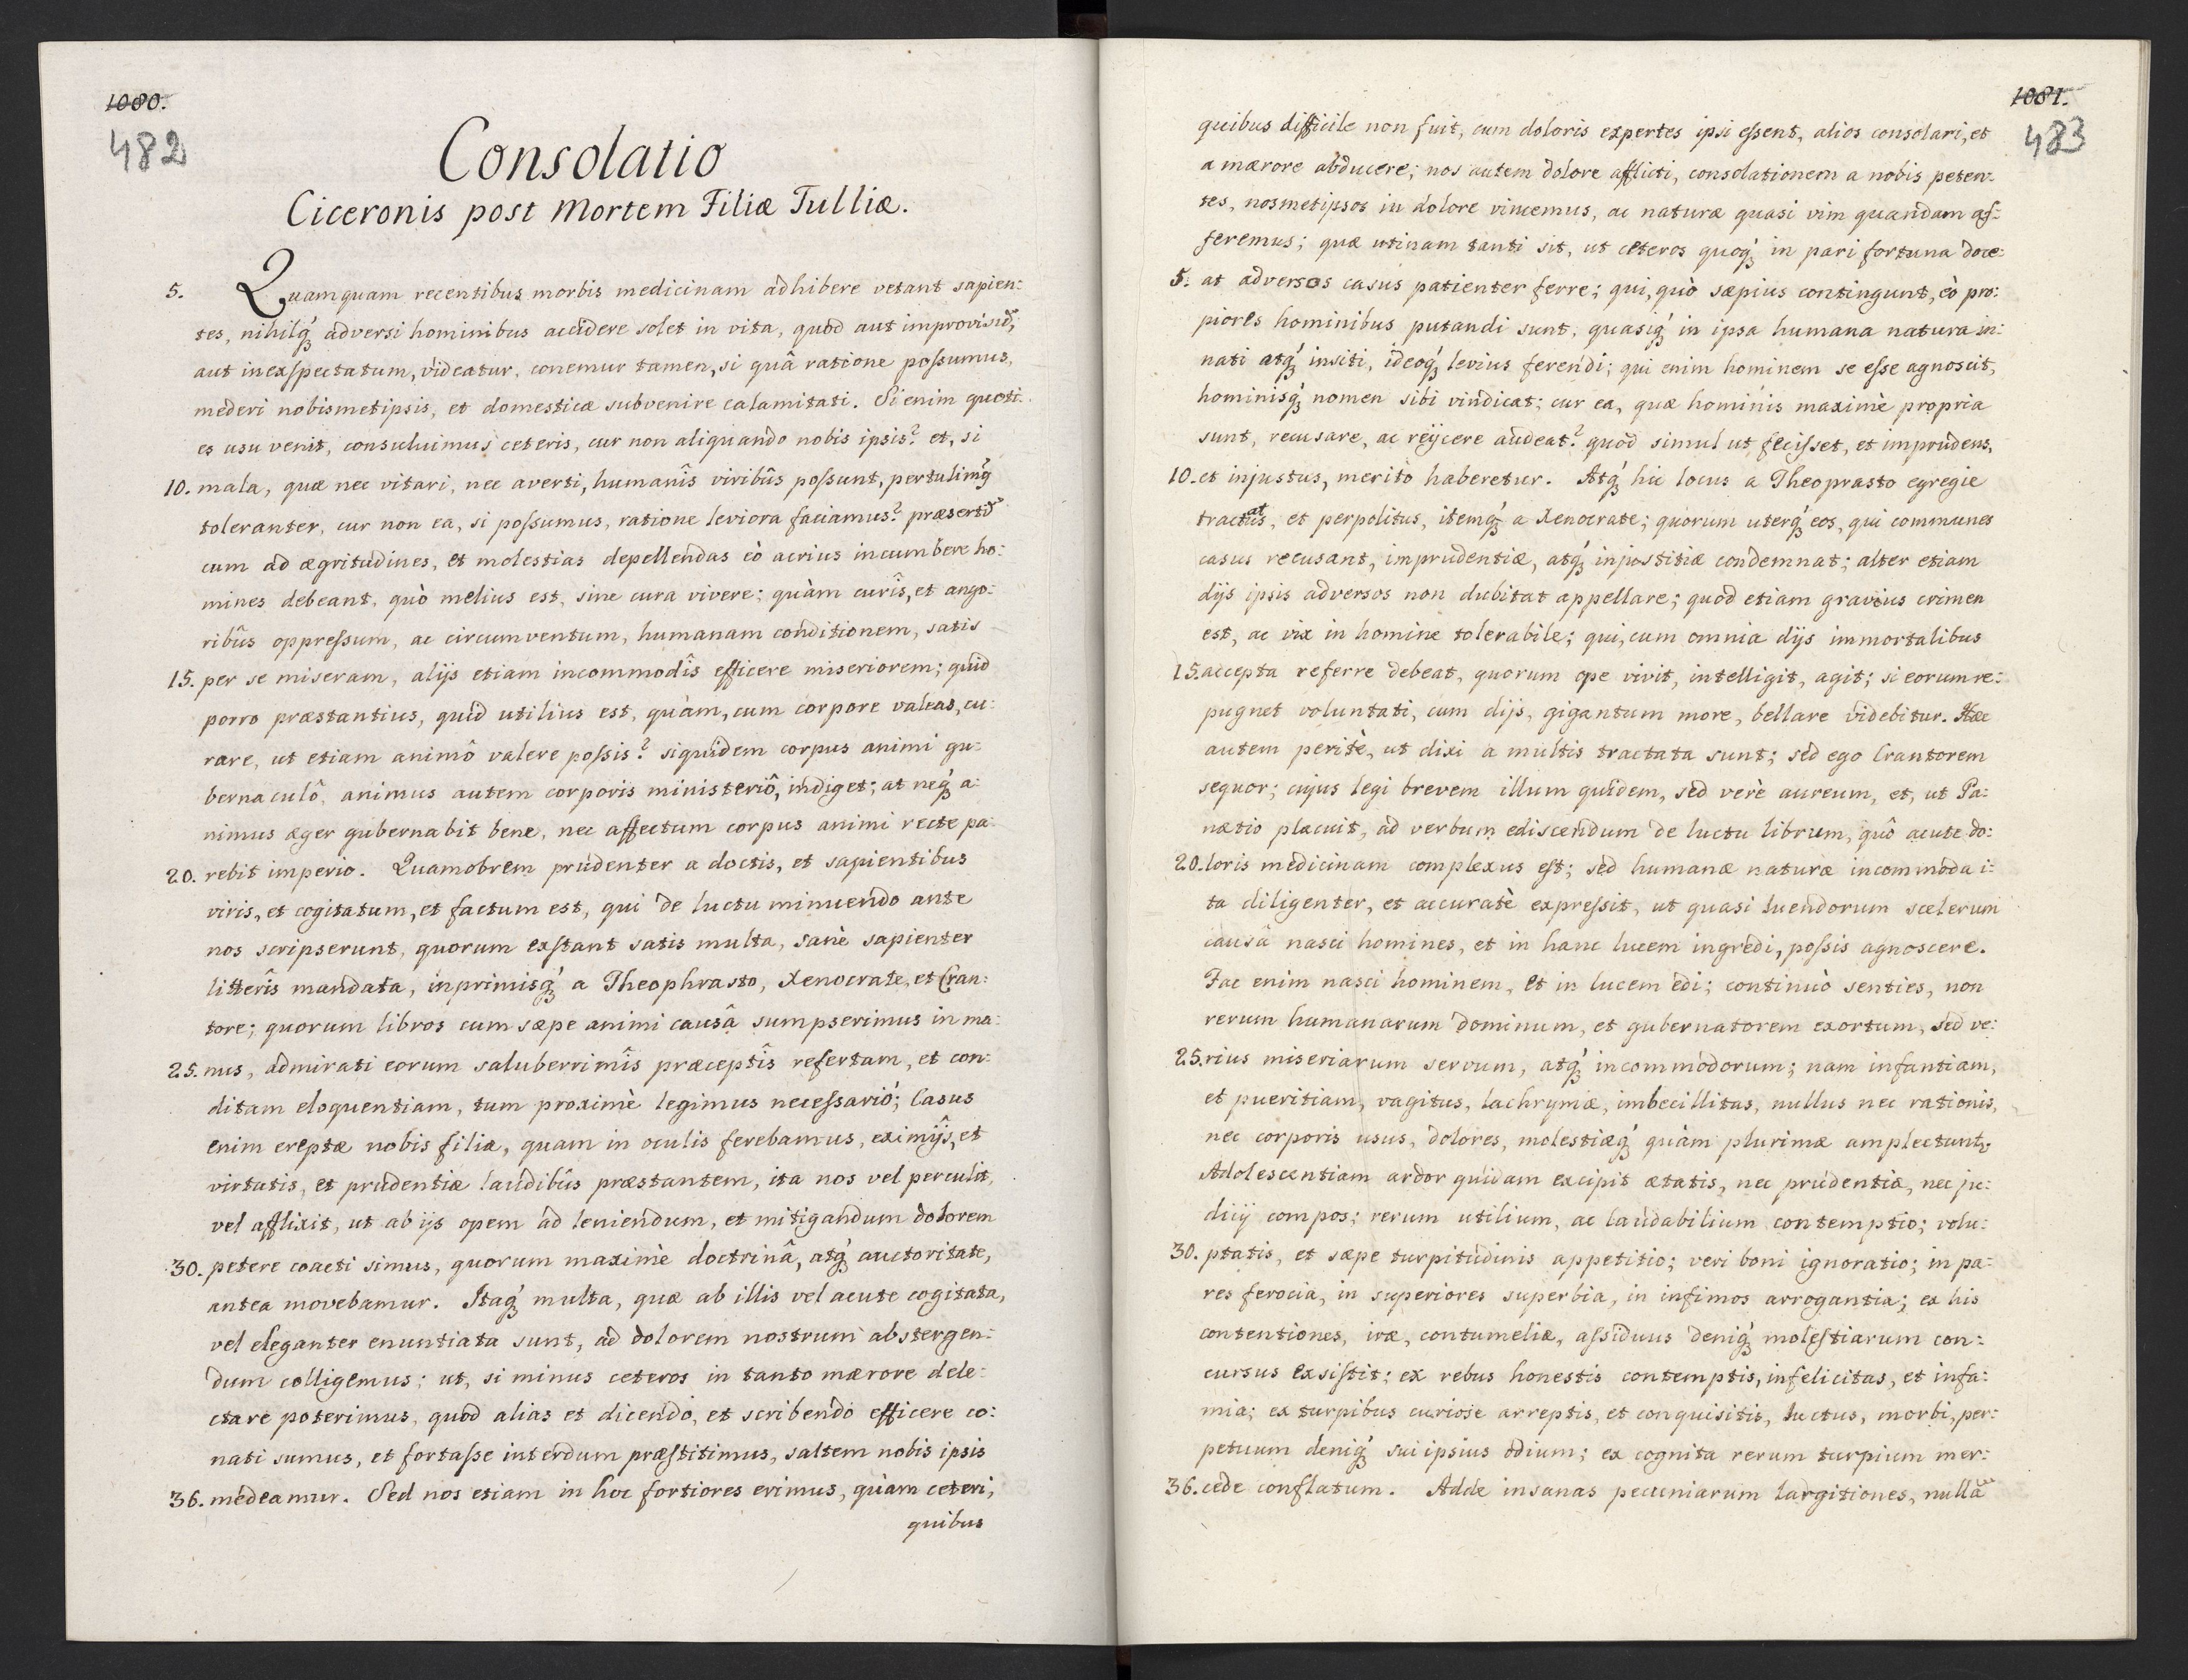 1080.
482
Consolatio
Ciceronis post Mortem Filiæ Tulliæ.
5. Quamquam recentibus morbis medicinam adhibere vetant sapien:
tes, nihilq́; adversi hominibus accidere solet in vita, quod aut improvisũ,
aut inexspectatum, videatur, conemur tamen, si quâ ratione possumus,
mederi nobismetipsis, et domesticæ subvenire calamitati. Si enim quoti:
es usu venit, consuluimus ceteris, cur non aliquando nobis ipsis? et, si
10. mala, quæ nec vitari, nec averti, humanîs viribûs possunt, pertulimꝰ
toleranter, cur non ea, si possumus, ratione leviora faciamus? præsertĩ
cum ad ægritudines, et molestias depellendas eò acrius incumbere ho:
mines debeant, quò melius est, sine cura vivere; quàm curîs, et ango:
ribûs oppressum, ac circumventum, humanam conditionem, satis
15. per se miseram, alijs etiam incommodîs efficere miseriorem; quid
porro præstantius, quid utilius est, quàm, cum corpore valeas, cu:
rare, ut etiam animô valere possis? siquidem corpus animi gu:
bernaculô, animus autem corporis ministeriô, indiget; at neq́; a:
nimus æger gubernabit bene, nec affectum corpus animi recte pa:
20. rebit imperio. Quamobrem prudenter a doctis, et sapientibus
viris, et cogitatum, et factum est, qui de luctu minuendo ante
nos scripserunt, quorum exstant satis multa, sanè sapienter
litterîs mandata, inprimisq́; a Theophrasto, Xenocrate, et Cran:
tore; quorum libros cum sæpe animi causâ sumpserimus in ma:
25. nus, admirati eorum saluberrimîs præceptîs refertam, et con:
ditam eloquentiam, tum proximè legimus necessariò; Casus
enim ereptæ nobis filiæ, quam in oculis ferebamus, eximijs, et
virtutis, et prudentiæ laudibûs præstantem, ita nos vel perculit,
vel afflixit, ut ab ijs opem ad leniendum, et mitigandum dolorem
30. petere coacti simus, quorum maximè doctrinâ, atq́; auctoritate,
antea movebamur. Itaq́; multa, quæ ab illis vel acute cogitata,
vel eleganter enuntiata sunt, ad dolorem nostrum abstergen:
dum colligemus; ut, si minus ceteros in tanto mærore dele:
ctare poterimus, quod alias et dicendo, et scribendo efficere co:
nati sumus, et fortasse interdum præstitimus, saltem nobis ipsis
36. medeamur. Sed nos etiam in hoc fortiores erimus, quàm ceteri,
quibus
1081.
483
quibus difficile non fuit, cum doloris expertes ipsi essent, alios consolari, et
a mærore abducere; nos autem dolore afflicti, consolationem a nobis peten:
tes, nosmetipsos in dolore vincemus, ac naturæ quasi vim quandam af:
feremus; quæ utinam tanti sit, ut ceteros quoq́; in pari fortuna doce:
5. at adversos casus patienter ferre; qui, quò sæpius contingunt, eò pro:
piores hominibus putandi sunt, quasiq́; in ipsa humana natura in:
nati atq́; insiti, ideoq́; levius ferendi; qui enim hominem se esse agnoscit,
hominisq́; nomen sibi vindicat; cur ea, quæ hominis maximè propria
sunt, recusare, ac reijcere audeat? quod simul ut fecisset, et imprudens,
10. et injustus, meritò haberetur. Atq́; hic locus a Theoprasto egregie
tractatus, et perpolitus, itemq́; a Xenocrate; quorum uterq́; eos, qui communes
casus recusant, imprudentiæ, atq́; injustitiæ condemnat; alter etiam
dijs ipsis adversos non dubitat appellare; quod etiam gravius crimen
est, ac vix in homine tolerabile; qui, cum omnia dijs immortalibus
15. accepta referre debeat, quorum ope vivit, intelligit, agit; si eorum re:
pugnet voluntati, cum dijs, gigantum more, bellare videbitur. Hæc
autem peritè, ut dixi a multis tractata sunt; sed ego Crantorem
sequor; cujus legi brevem illum quidem, sed verè aureum, et, ut Pa:
nætio placuit, ad verbum ediscendum de luctu librum, quô acute do:
20. loris medicinam complexus est; sed humanæ naturæ incommoda i:
ta diligenter, et accuratè expressit, ut quasi luendorum scelerum
causâ nasci homines, et in hanc lucem ingredi, possis agnoscere.
Fac enim nasci hominem, et in lucem edi; continuò senties, non
rerum humanarum dominum, et gubernatorem exortum, sed ve:
25. rius miseriarum servum, atq́; incommodorum; nam infantiam,
et pueritiam, vagitus, lachrymæ, imbecillitas, nullus nec rationis,
nec corporis usus, dolores, molestiæq́; quàm plurimæ amplectunt~.
Adolescentiam ardor quidam excipit ætatis, nec prudentiæ, nec ju:
dicij compos; rerum utilium, ac laudabilium contemptio; volu:
30. ptatis, et sæpe turpitudinis appetitio; veri boni ignoratio; in pa:
res ferocia, in superiores superbia, in infimos arrogantia; ex his
contentiones, iræ, contumeliæ, assiduus deniq́; molestiarum con:
cursus existit; ex rebus honestis contemptis, infelicitas, et infa:
mia; ex turpibus curiose arreptis, et conquisitis, luctus, morbi, per:
petuum deniq́; sui ipsius odium; ex cognita rerum turpium mer:
36. cede conflatum. Adde insanas pecuniarum largitiones, nullã